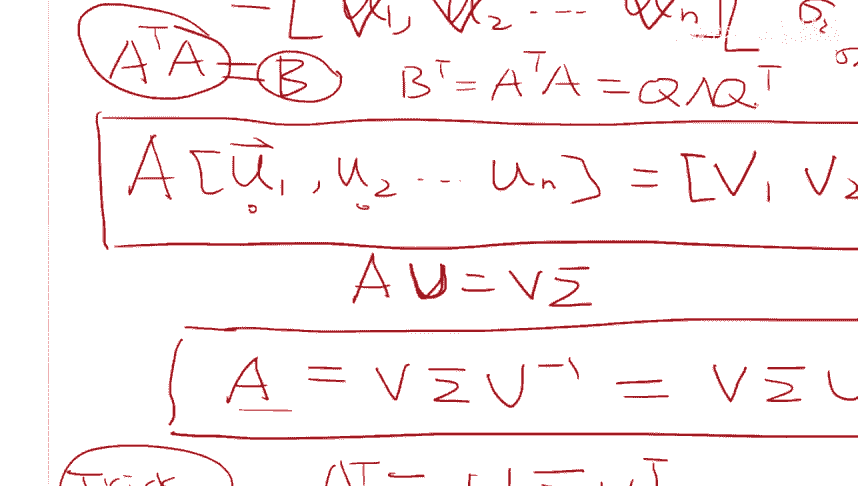 = [ V1, V2 ... Vn ] [ σ2
AᵀA = B Bᵀ = AᵀA = QΛQᵀ
A [u⃗1, u2 ... un] = [V1 V2
A U = V Σ
A = V Σ U⁻¹ = V Σ U
Trick Aᵀ =